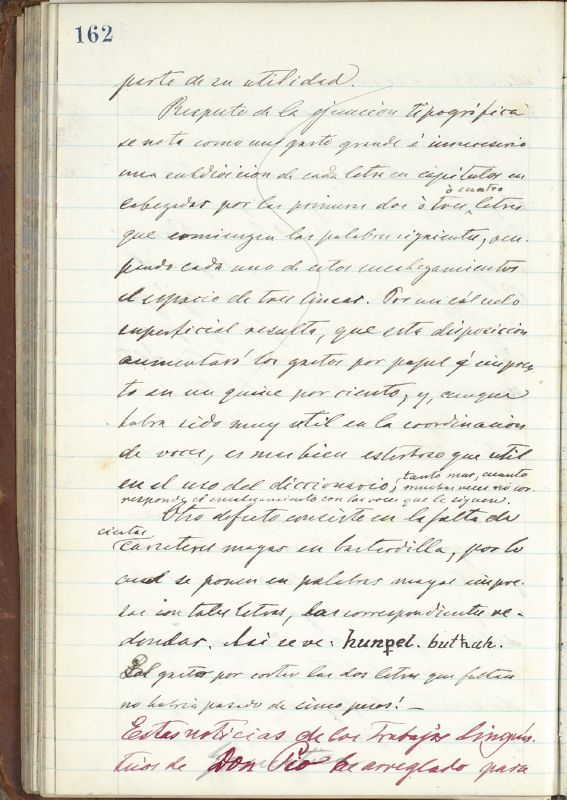 162
parte de su utilidad.
Respecto de la ejecucion tipográfica
se nota como un gasto grande é innecesario
una subdivicion de cada letra en capítulos en
cabezadas por las primeras dos ó tres ó cuatro letras
que comienzan las palabras siguientes, ocu-
pando cada uno de estos encabezamientos
el espacio de tres lineas. Por un cálculo
superficial resulta, que esta disposicion
aumentará los gastos por papel é impren-
ta en un quince por ciento, y, aunque
habra sido muy util en la coordinacion
de voces, es mas bien estorboso que util
en el uso del diccionario, tanto mas, cuanto
muchas veces no cor-
responde el encabezamiento con las voces que le siguen.
Otro defecto consiste en la falta de
ciertos caracteres mayas en bastardilla, por lo
cual se ponen en palabras mayas impre-
sas con tales letras, las correspondientes re-
dondas. Asi se ve: hunpel. buthah.
El gasto por cortar las dos letras que faltan
no habria pasado de cinco pesos! —
Estas noticias de los trabajos linguis-
ticos de Don Pio he arreglado para